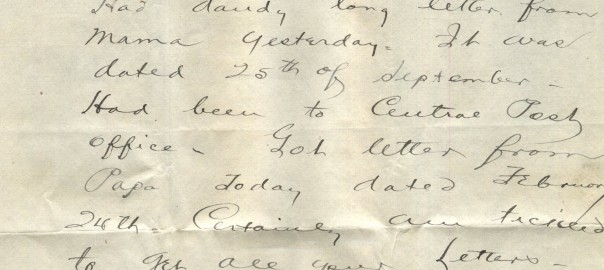 Had dandy long letter from
Mama yesterday. It was
dated 25th of September -
Had been to Central Post
office - Got letter from
Papa today dated February
24th. Certainly am tickled
to get all your letters -